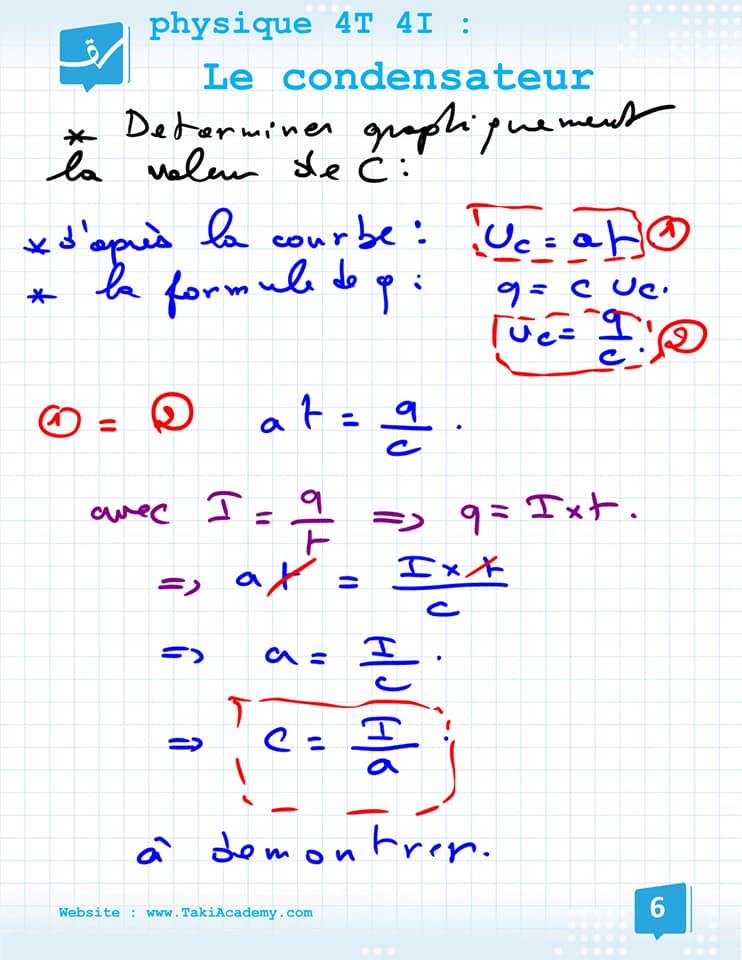 physique 4T 4I :
Le condensateur
* Determiner graphiquement
la valeur de C :
* d'après la courbe : Uc = at ①
* la formule de q : q = C Uc.
Uc = q/C . ②
① = ② at = q/C .
avec I = q/t => q = I x t.
=> at = I x t / C
=> a = I/C .
=> C = I/a .
à demontrer.
Website : www.TakiAcademy.com
6